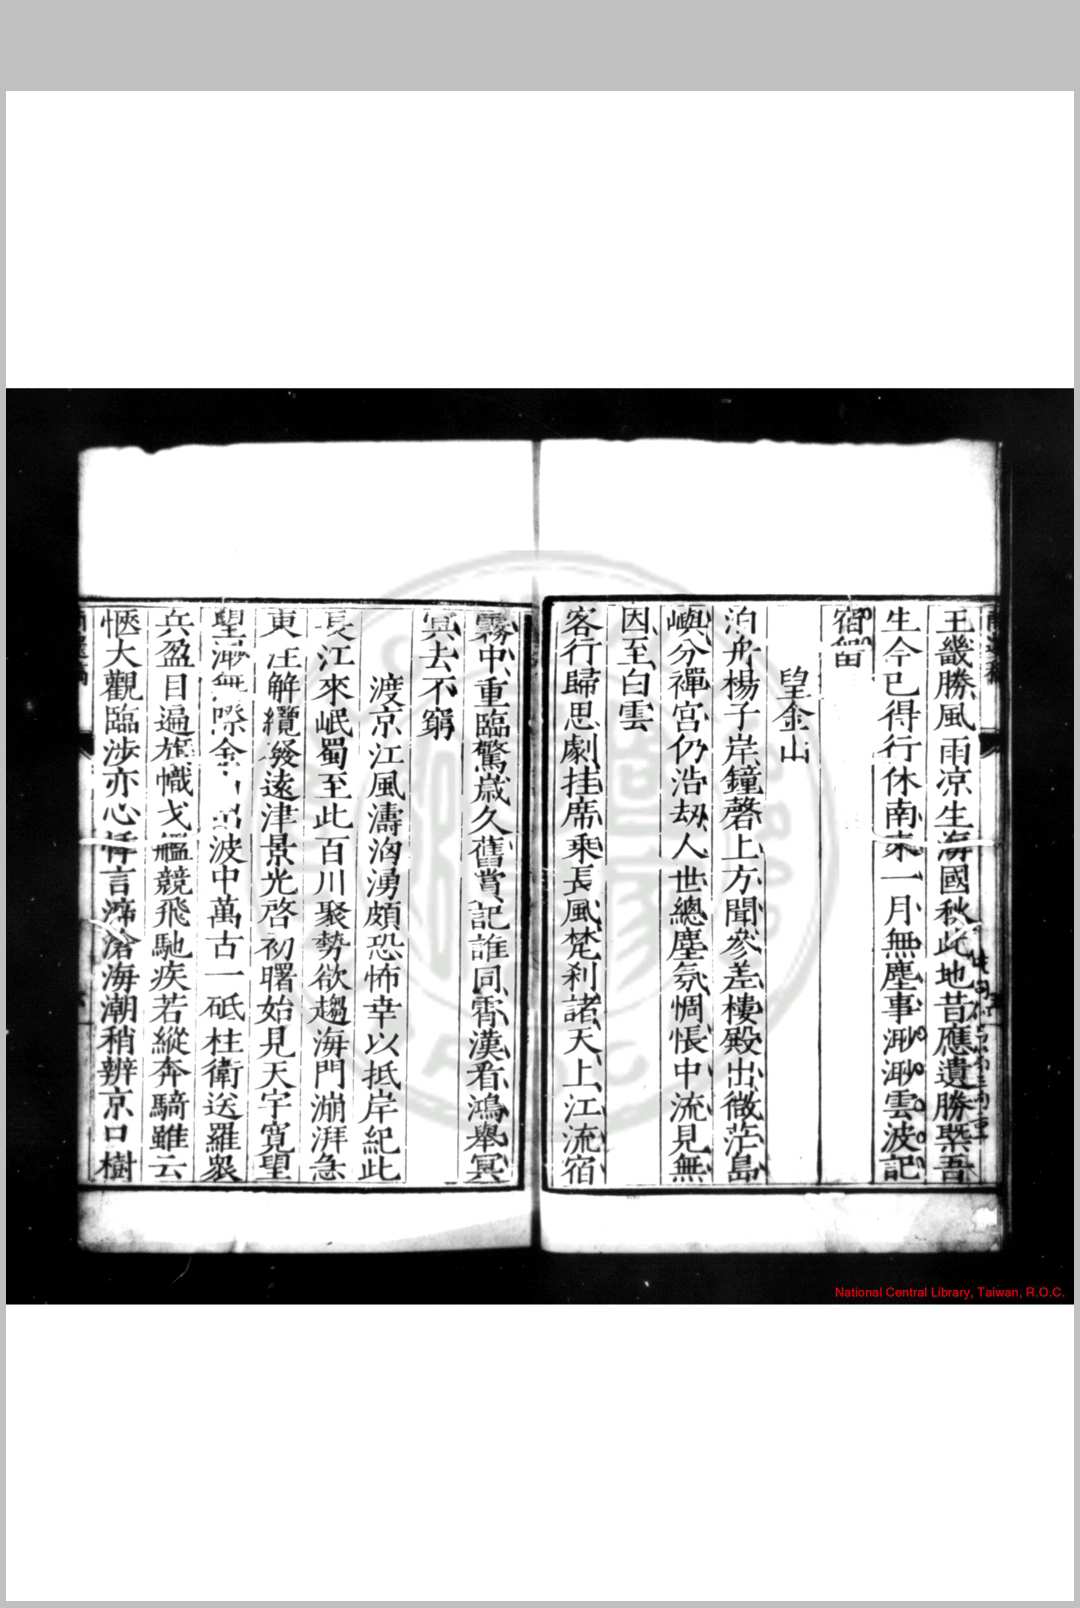 王畿勝風雨凉生海國秋此地昔應遺勝槩吾
生今已得行休南來一月無塵事渺渺雲波記
宿留
望金山
泊舟楊子岸鐘磬上方聞參差樓殿出微茫島
嶼分禪宮仍浩刼人世總塵氛惆悵中流見無
因至白雲
客行歸思劇挂席乘長風梵刹諸天上江流宿
霧中重臨驚歲久舊賞記誰同霄漢看鴻舉冥
冥去不窮
渡京江風濤洶湧頗恐怖幸以抵岸紀此
長江來岷蜀至此百川聚勢欲趨海門漰湃急
東注解纜發遠津景光啓初曙始見天宇寬望
望渺無際金山出波中萬古一砥柱衛送羅衆
兵盈目遍旗幟戈艦競飛馳疾若縱奔騎雖云
愜大觀臨涉亦心悸言滯滄海潮稍辨京口樹
National Central Library, Taiwan, R.O.C.